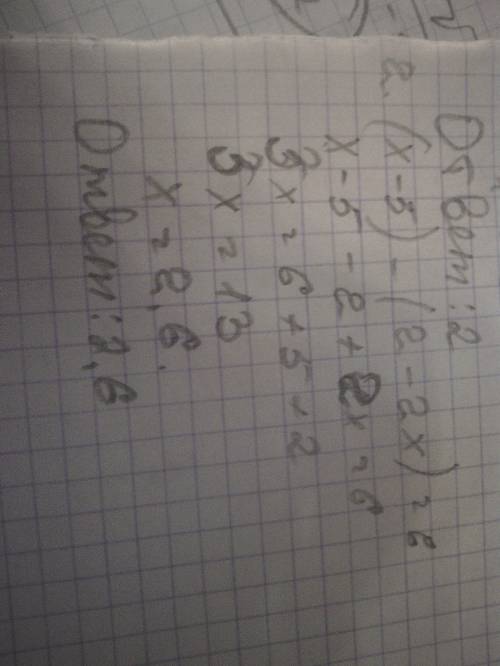 Ответ: 2
2. (x - 5) - (2 - 2x) = 6
x - 5 - 2 + 2x = 6
3x = 6 + 5 + 2
3x = 13
x = 2,6.
Ответ: 2,6